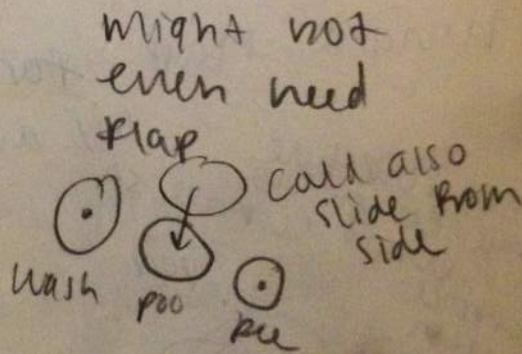 might not
even need
flap
could also
slide from
side
wash
poo
pee